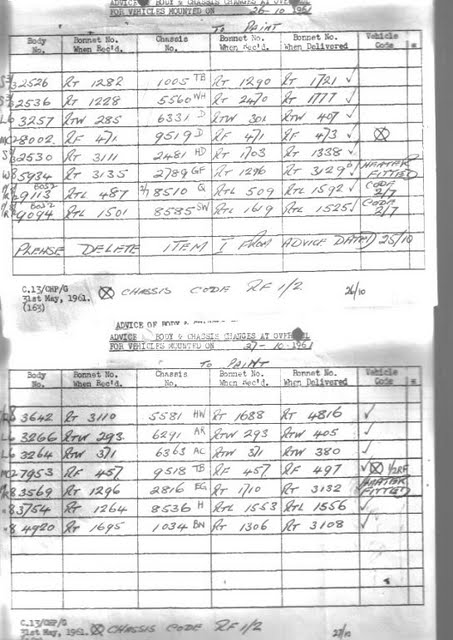 ADVICE OF BODY & CHASSIS CHANGES AT OVERHAUL
FOR VEHICLES MOUNTED ON 26-10-1961
TO PAINT
Body No. Bonnet No. When Rec'd. Chassis No. Bonnet No. When Recd. Bonnet No. When Delivered Vehicle Code
2526 RT 1282 1005 TB RT 1290 RT 1721 ✓
2536 RT 1228 5560 WH RT 2470 RT 1777 ✓
L6 3257 RTW 285 6331 D RTW 301 RTW 407 ✓
28002 RF 471 9519 D RF 471 RF 473 ✓ ⊗
2530 RT 3111 2481 HD RT 1703 RT 1338 ✓
5934 RT 3135 2789 GF RT 1296 RT 3129 HEATER FITTED
9113 RTL 487 8510 Q RTL 509 RTL 1592 ✓ CODE 2/7
9094 RTL 1501 8585 SW RTL 1619 RTL 1525 ✓ CODE 2/7
PLEASE DELETE ITEM I FROM ADVICE DATED 25/10
C.13/CHP/G
31st May, 1961.
(163)
⊗ CHASSIS CODE RF 1/2 26/10
ADVICE OF BODY &
ADVICE BODY & CHASSIS CHANGES AT OVERHAUL
FOR VEHICLES MOUNTED ON 27-10-1961
TO PAINT
Body No. Bonnet No. When Rec'd. Chassis No. Bonnet No. When Rec'd. Bonnet No. When Delivered Vehicle Code
3642 RT 3110 5581 HW RT 1688 RT 4816 ✓
L6 3266 RTW 293 6291 AR RTW 293 RTW 405 ✓
L6 3264 RTW 371 6363 AC RTW 371 RTW 380 ✓
27953 RF 457 9518 TB RF 457 RF 497 ✓ ⊗ 1/2RF
83569 RT 1296 2816 EG RT 1710 RT 3132 HEATER FITTED
83754 RT 1264 8536 H RTL 1553 RTL 1556 ✓
8 4920 RT 1695 1034 BN RT 1306 RT 3108 ✓
C.13/CHP/G
31st May, 1961. ⊗ CHASSIS CODE RF 1/2